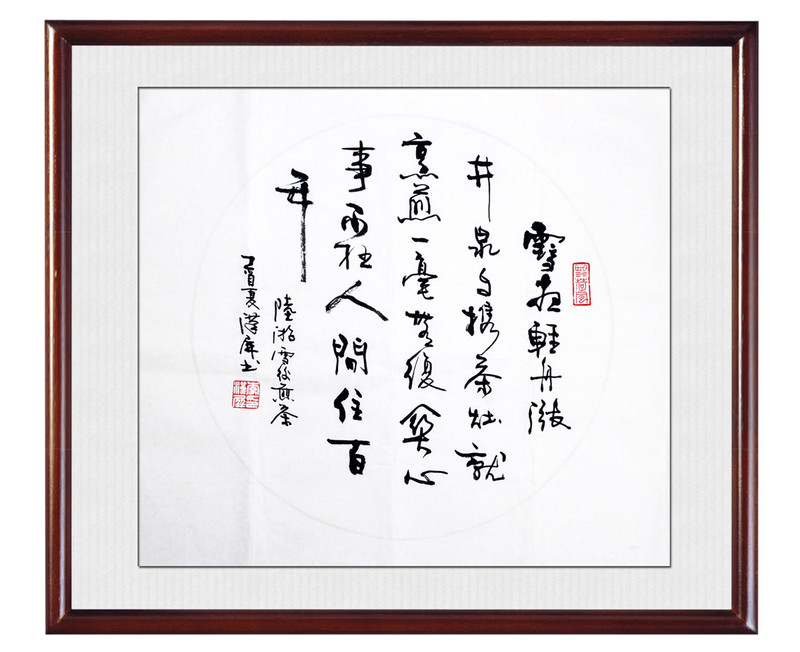 雪輕舟漲
井泉自攜茶灶就
烹煎一毫無復關心
事不枉人間住百
年
陸游雪後煎茶
丁酉夏漢屏书